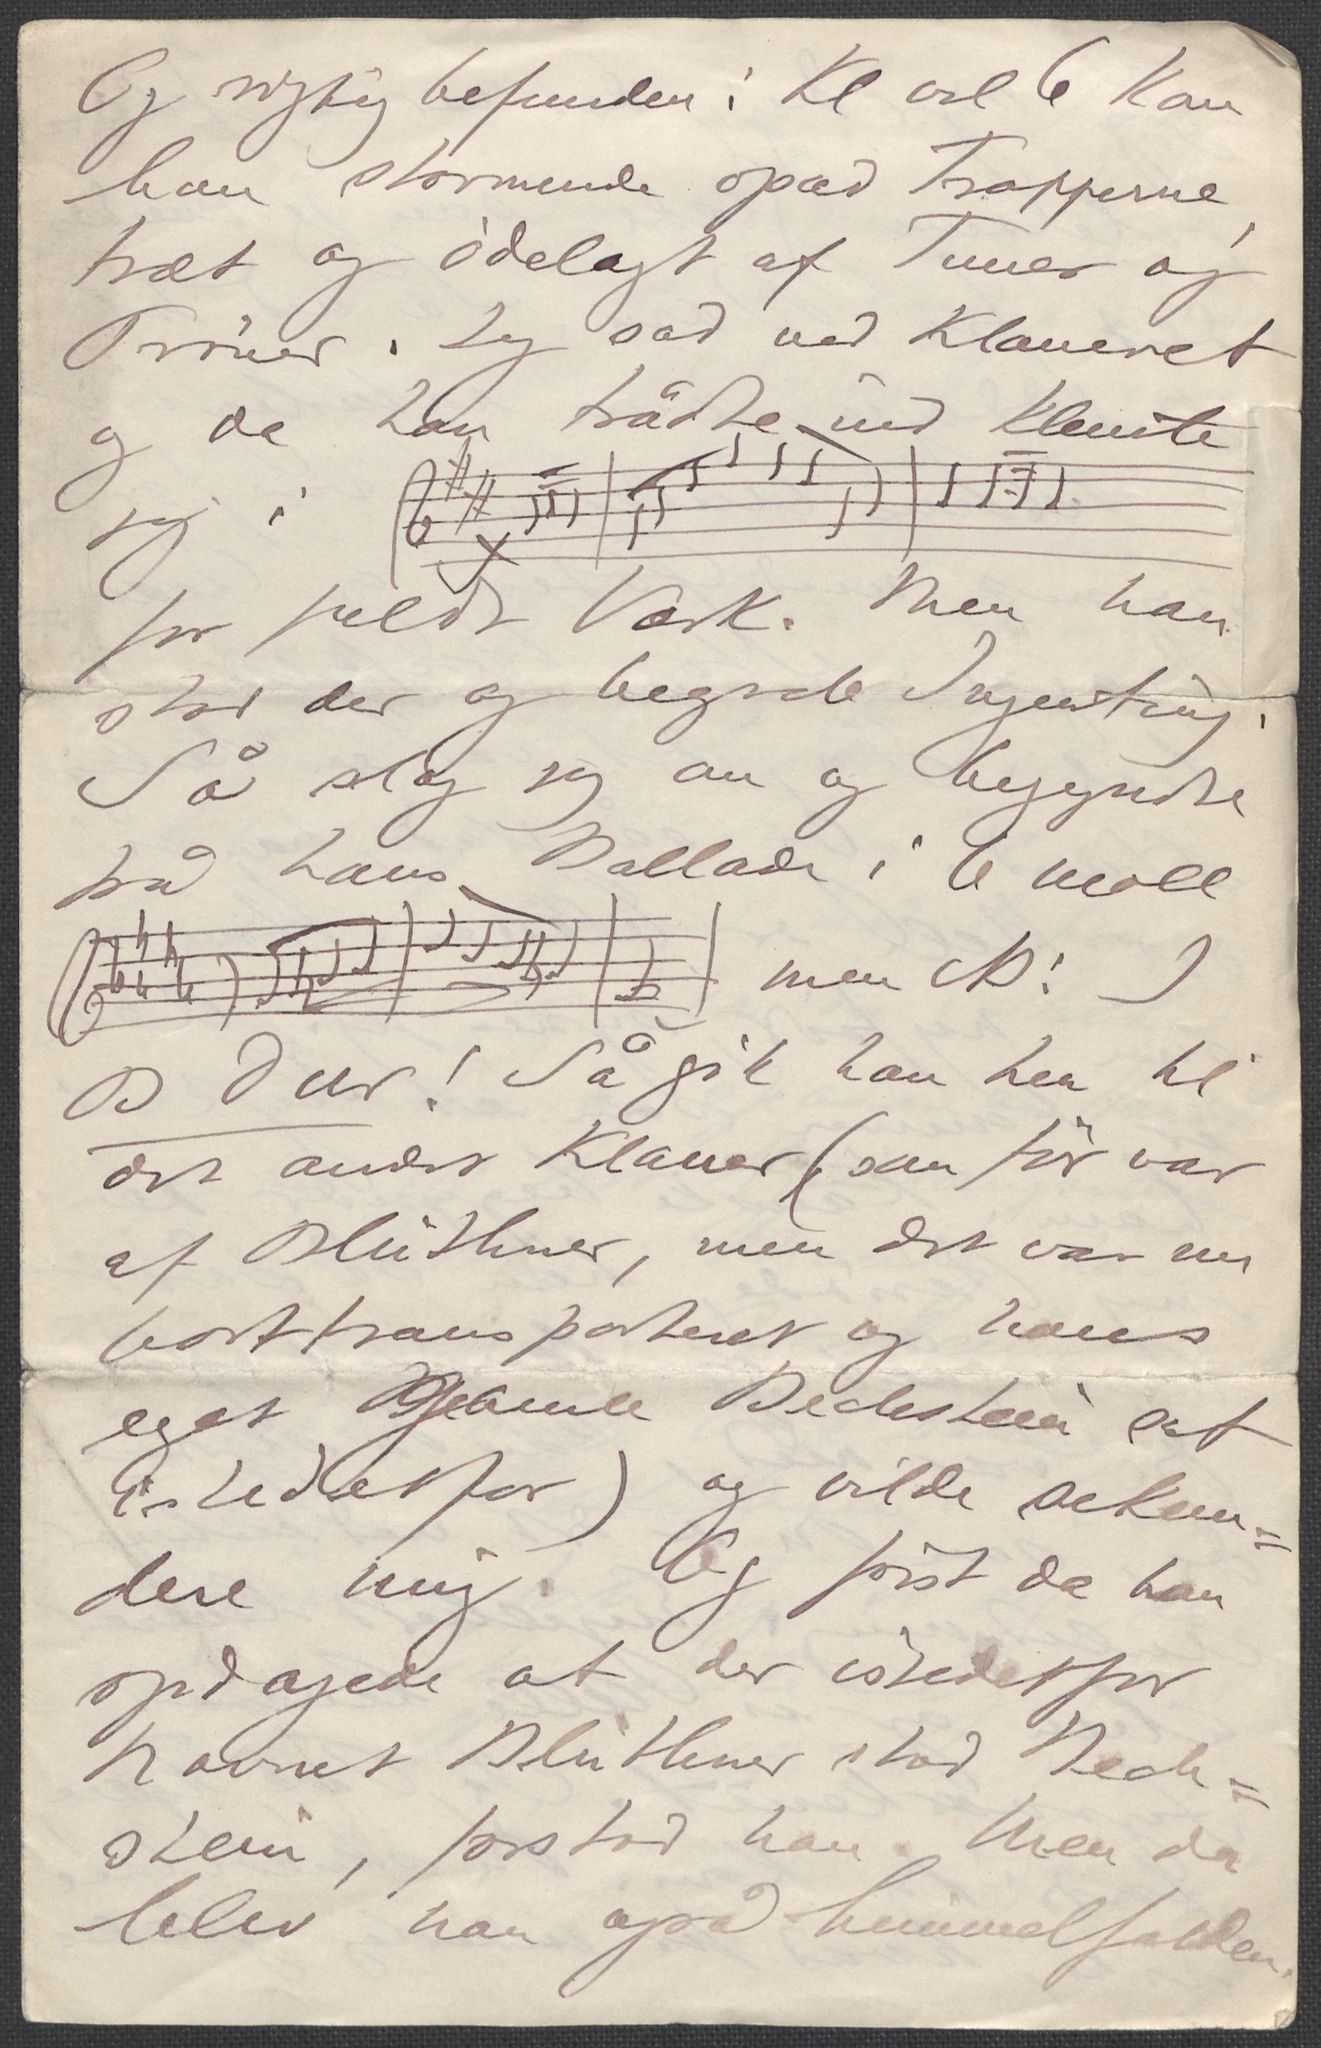 Og rigtig befunden: Kl vel 6 kom
han stormende opad Trapperne,
træt og ödelagt af Timer og
Pröver. Jeg sad ved Klaveret
og da han trådte ind klemte
jeg i
for fuldt Værk. Men han
stod der og begreb Ingenting.
Så slog jeg om og begyndte
på hans Ballade i b moll
men NB! I
B Dur! Så gik han hen til
det andet Klaver (som för var
af Blüthner, men det var nu
borttransporteret og hans
eget gamle Bechstein sat
istedetfor) og vilde sekun=
dere mig. Og först da han
opdagede at der istedetfor
Navnet Blüthner stod Bech=
stein, forstod han. Men da
blev han også himmelfalden.